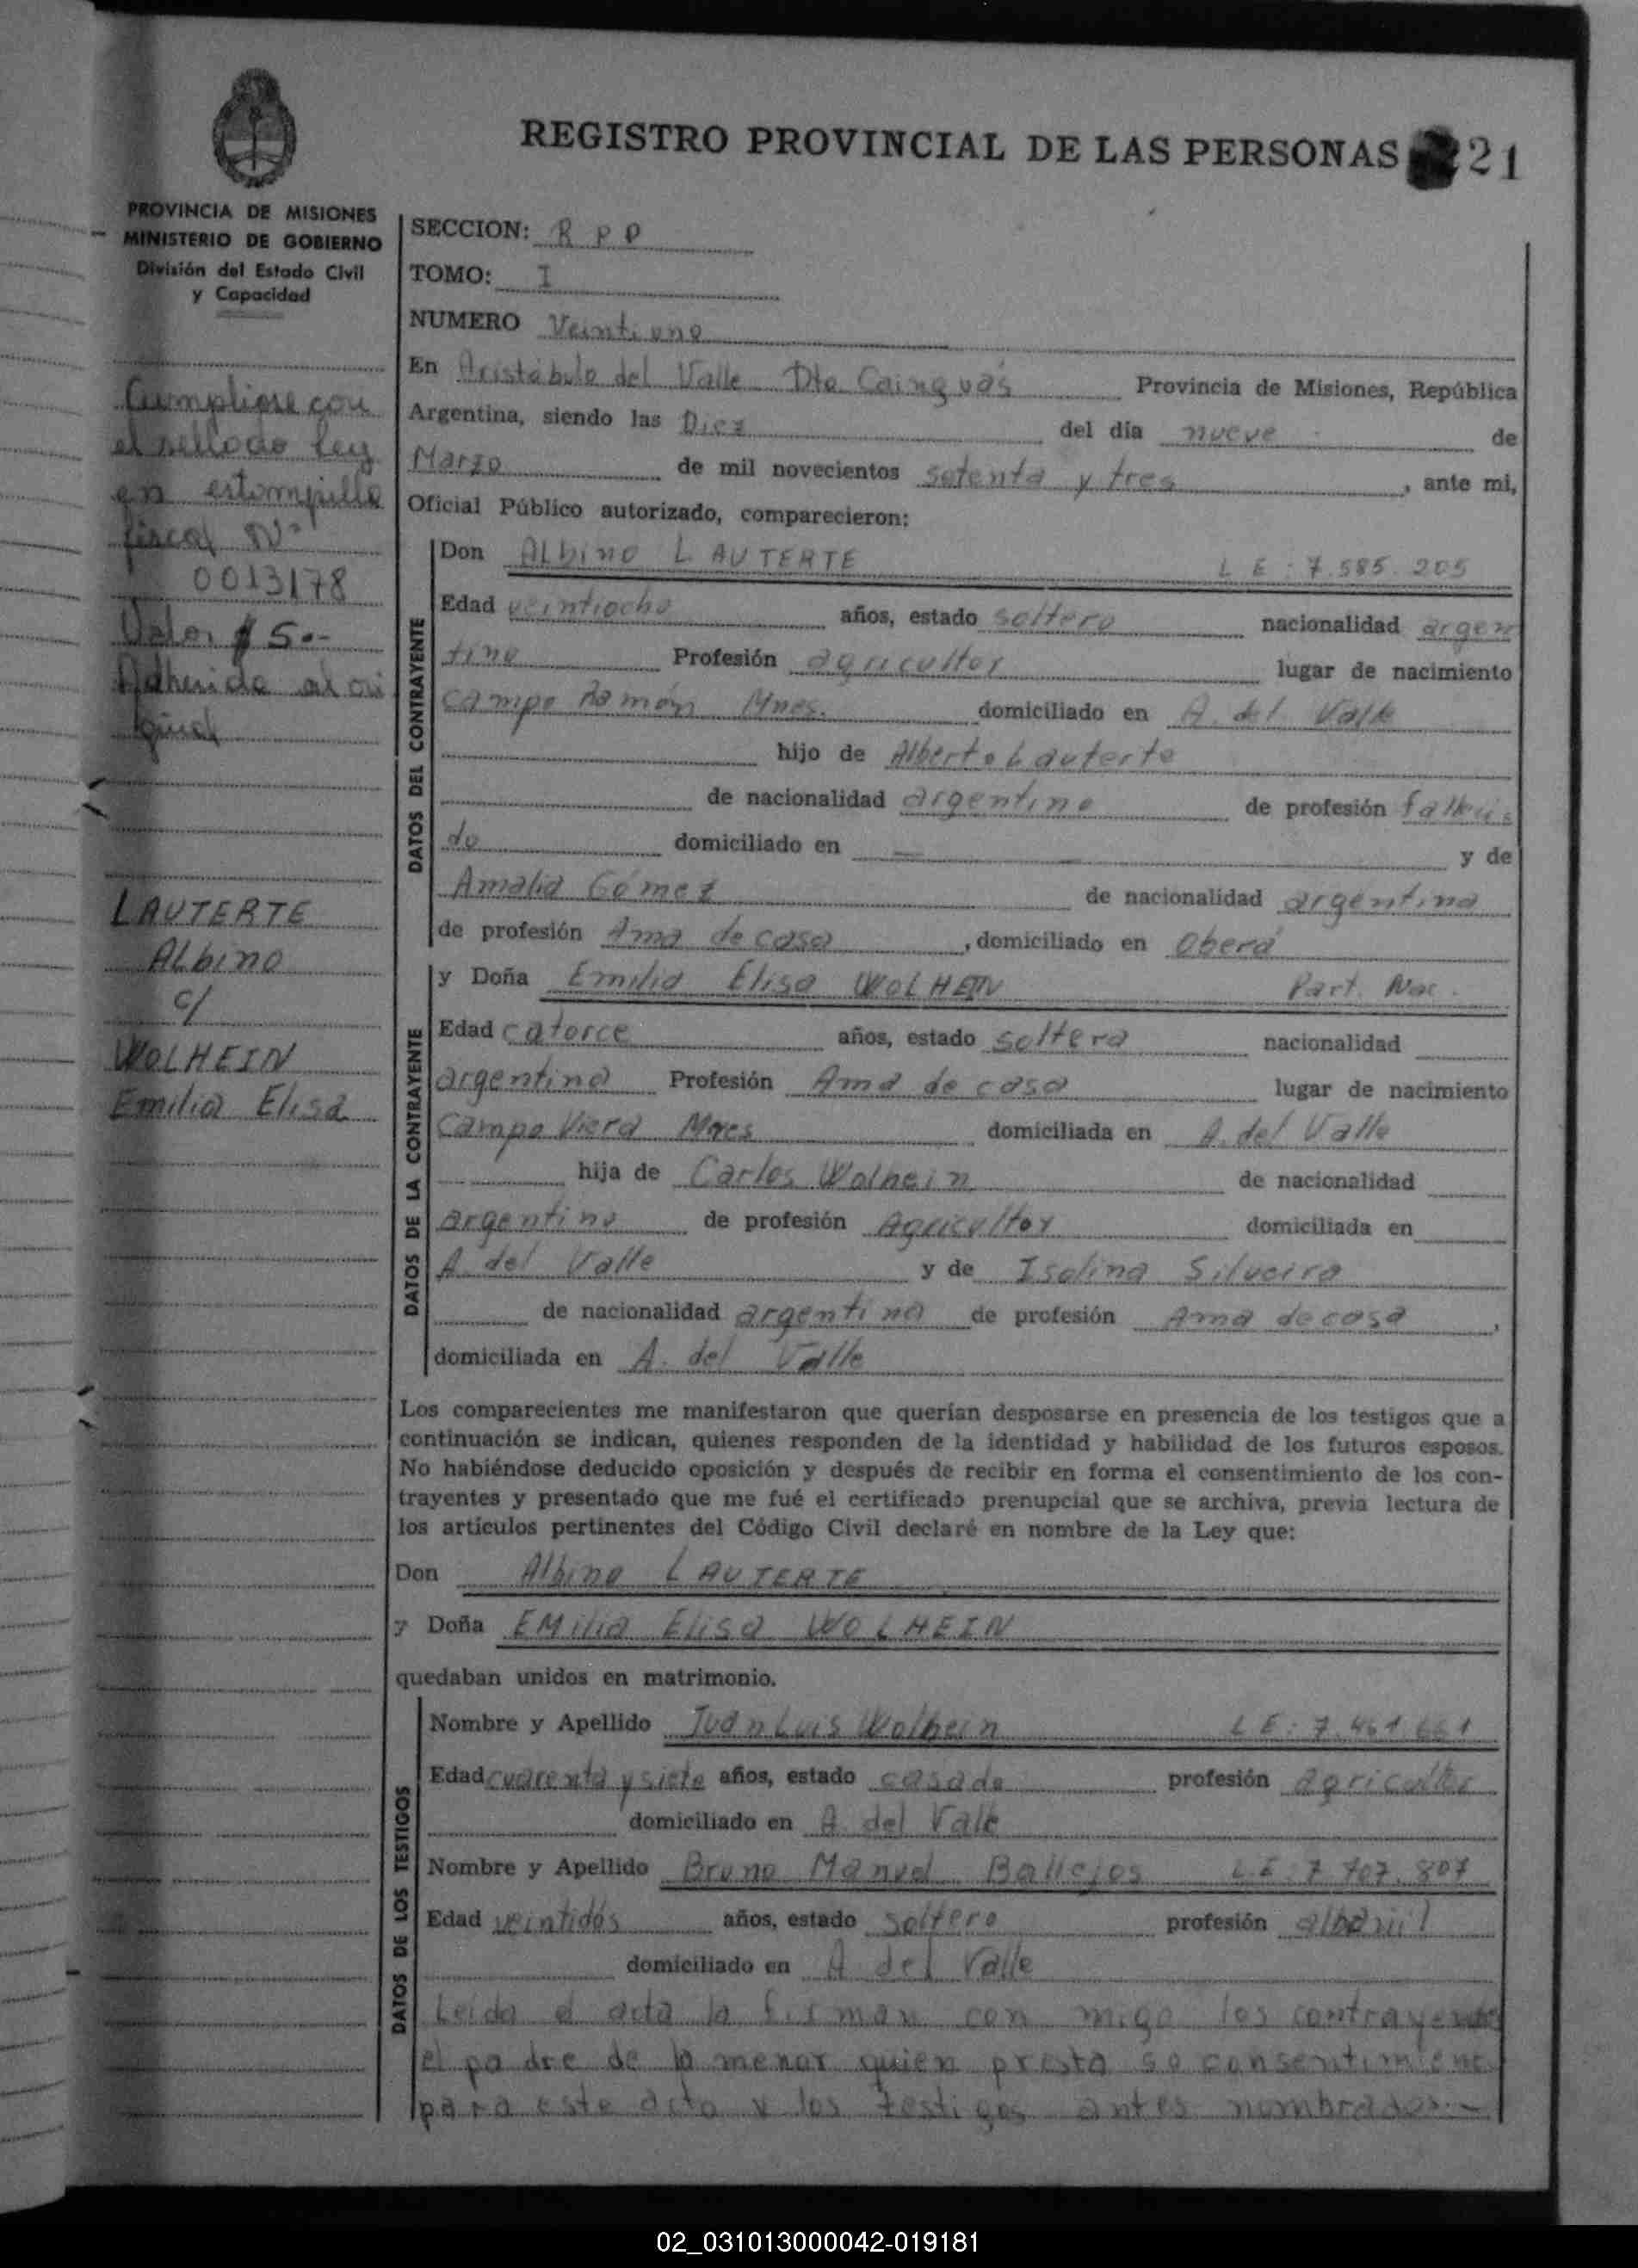 REGISTRO PROVINCIAL DE LAS PERSONAS 21
PROVINCIA DE MISIONES
MINISTERIO DE GOBIERNO
División del Estado Civil
y Capacidad
Cumpliose con
el sellado Ley
en estampilla
fiscal Nº
0013178
Valor $ 5.-
Adherida al ori
ginal
LAUTERTE
Albino
c/
WOLHEIN
Emilia Elisa
SECCION: R P P
TOMO: I
NUMERO Veintiuno
En Aristóbulo del Valle Dto Cainguás Provincia de Misiones, República
Argentina, siendo las Diez del día nueve de
Marzo de mil novecientos setenta y tres, ante mi,
Oficial Público autorizado, comparecieron:
DATOS DEL CONTRAYENTE
Don Albino LAUTERTE L E : 7.585.205
Edad veintiocho años, estado soltero nacionalidad argen
tino Profesión agricultor lugar de nacimiento
campo Ramón Mnes. domiciliado en A. del Valle
hijo de Alberto Lauterte
de nacionalidad argentino de profesión falleci
do domiciliado en — y de
Amalia Gómez de nacionalidad argentina
de profesión Ama de casa, domiciliado en Oberá
DATOS DE LA CONTRAYENTE
y Doña Emilia Elisa WOLHEIN Part. Nac.
Edad catorce años, estado soltera nacionalidad
argentina Profesión Ama de casa lugar de nacimiento
Campo Viera Mnes domiciliada en A. del Valle
hija de Carlos Wolhein de nacionalidad
argentino de profesión Agricultor domiciliada en
A. del Valle y de Isolina Silveira
de nacionalidad argentina de profesión Ama de casa,
domiciliada en A. del Valle
Los comparecientes me manifestaron que querían desposarse en presencia de los testigos que a
continuación se indican, quienes responden de la identidad y habilidad de los futuros esposos.
No habiéndose deducido oposición y después de recibir en forma el consentimiento de los con-
trayentes y presentado que me fué el certificado prenupcial que se archiva, previa lectura de
los artículos pertinentes del Código Civil declaré en nombre de la Ley que:
Don Albino LAUTERTE
y Doña EMilia Elisa WOLHEIN
quedaban unidos en matrimonio.
DATOS DE LOS TESTIGOS
Nombre y Apellido Juan Luis Wolhein L E : 7.461.661
Edad cuarenta y siete años, estado casado profesión agricultor
domiciliado en A. del Valle
Nombre y Apellido Bruno Manuel Ballejos L.E: 7.707.807
Edad veintidós años, estado soltero profesión albañil
domiciliado en A del Valle
Leída el acta la firman con migo los contrayentes
el padre de la menor quien presta so consentimienc
para este acto y los testigos antes nombrados.-
02_031013000042-019181